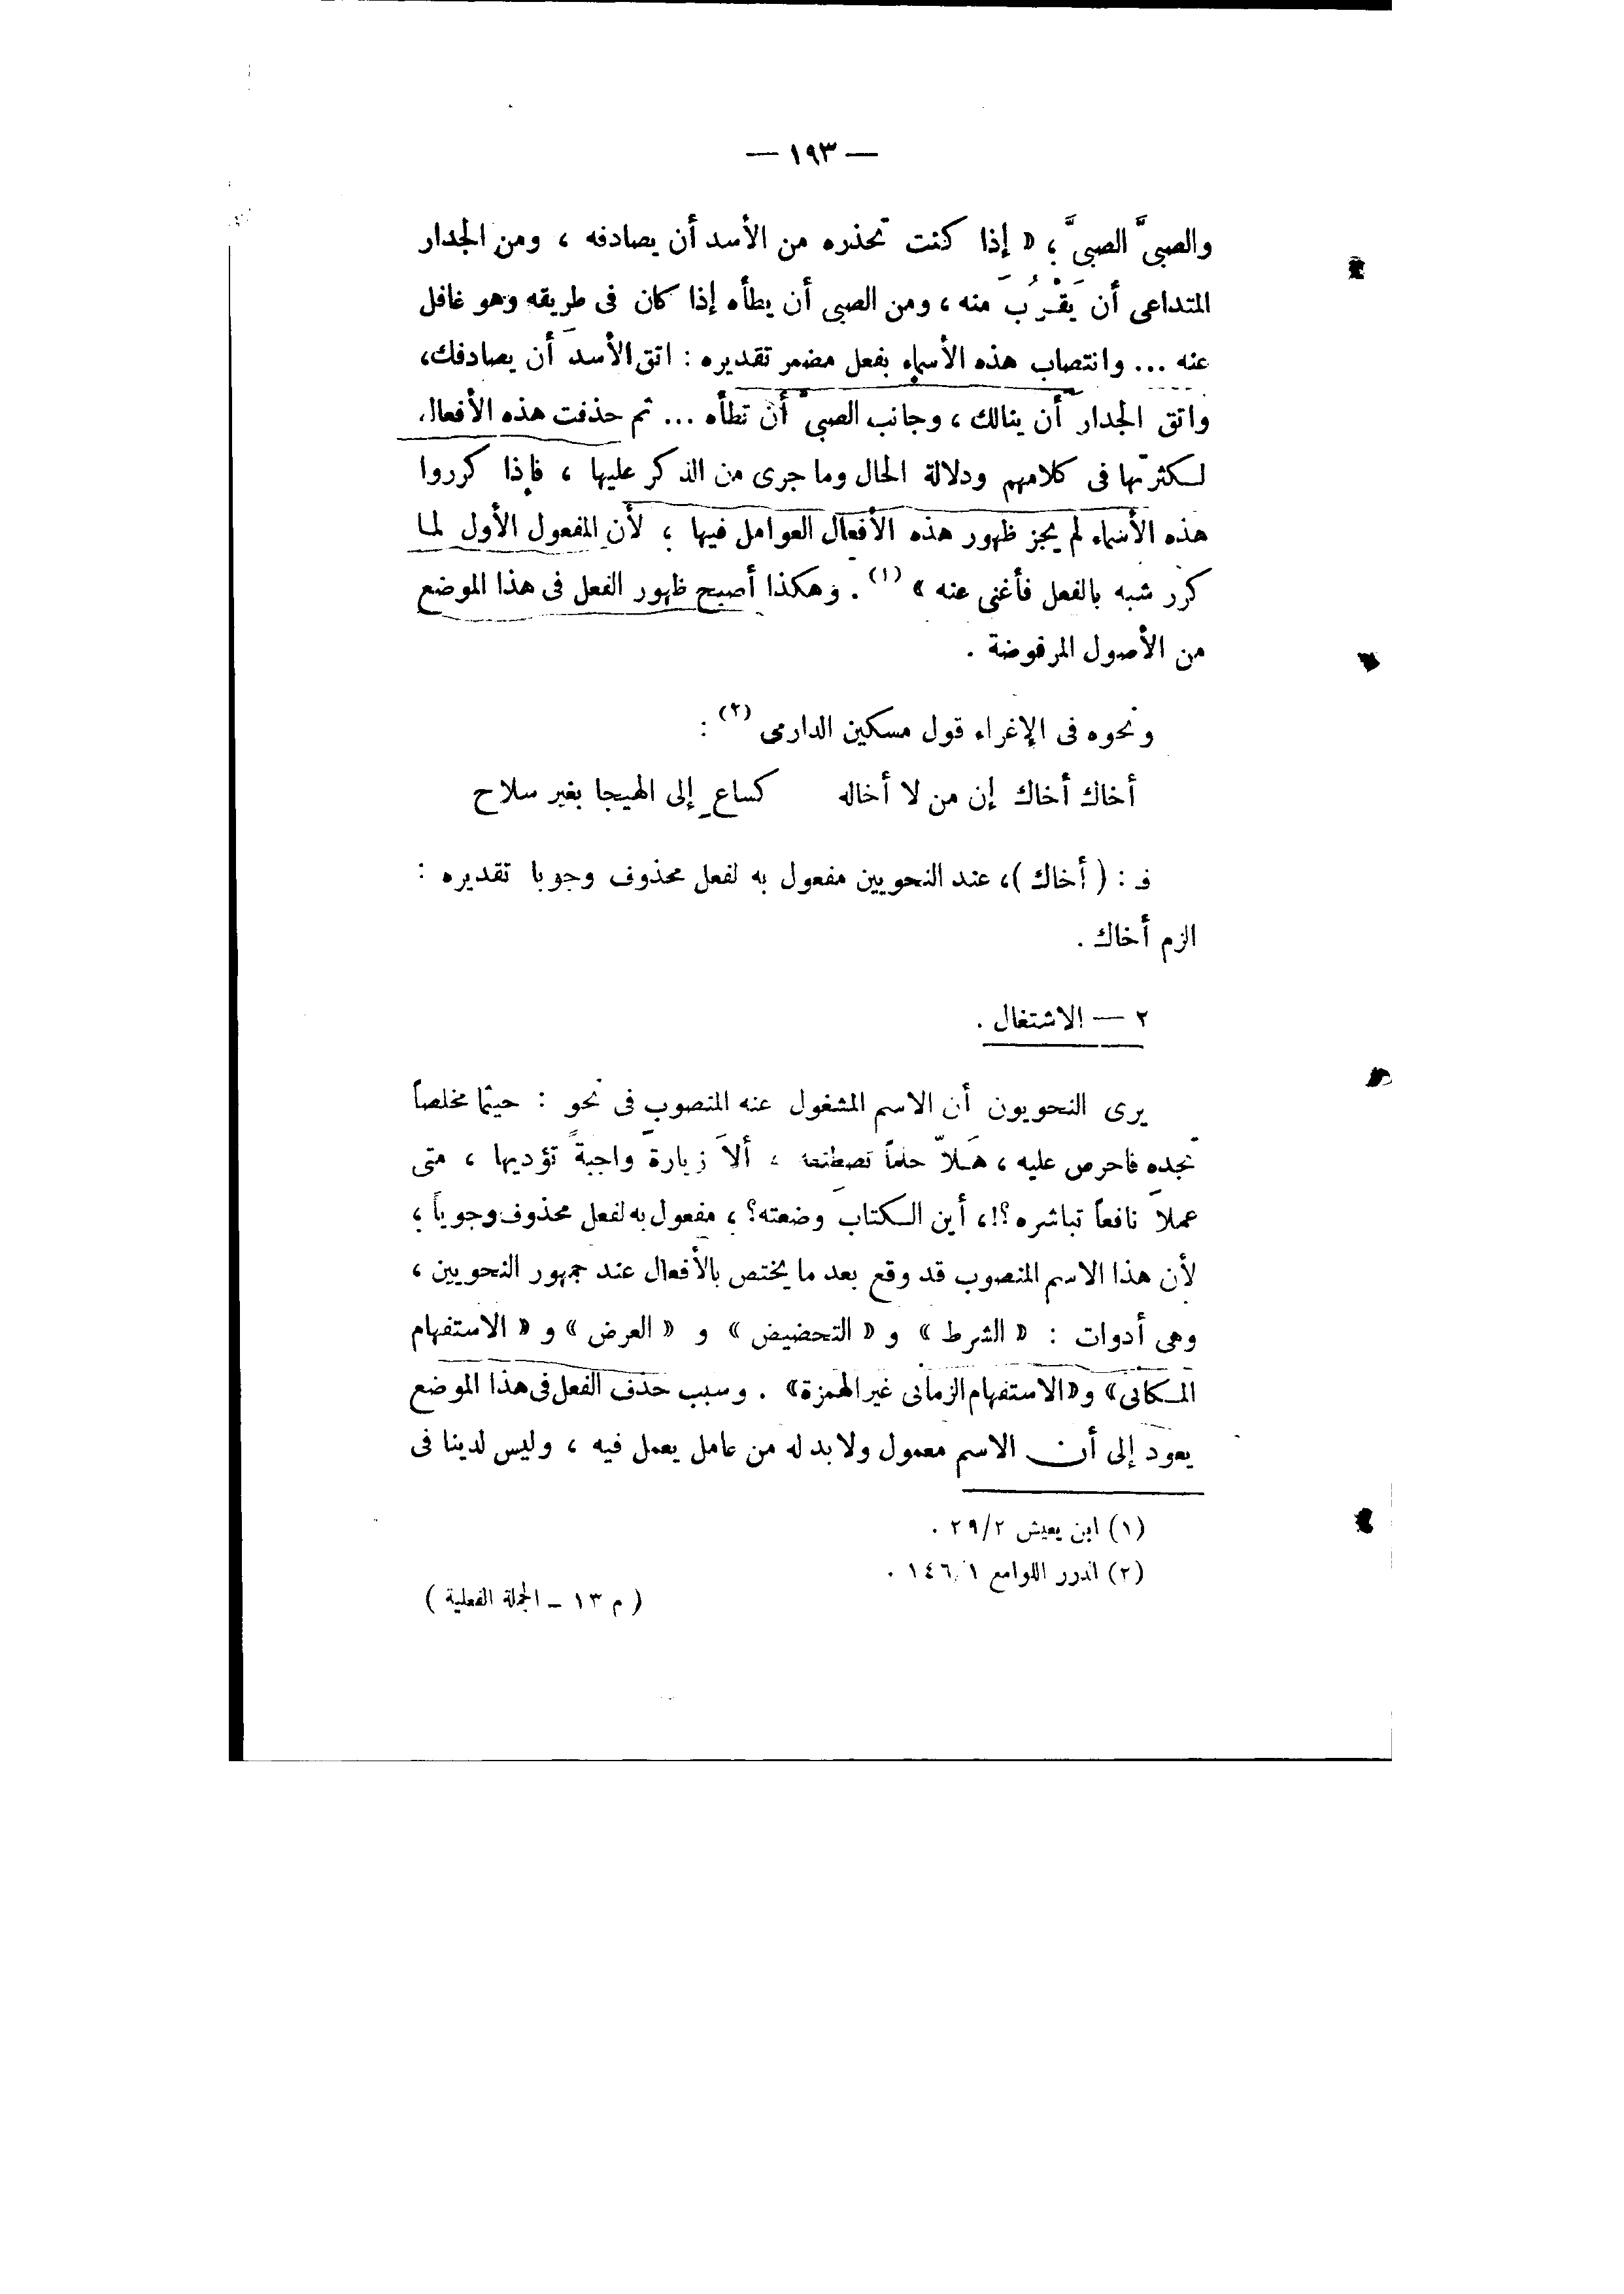 — ١٩٣ —
والصبىَّ الصبىَّ ؛ « إذا كنت تحذره من الأسد أن يصادفه ، ومن الجدار
المتداعى أن يَقْـرُبَ منه ، ومن الصبى أن يطأه إذا كان فى طريقه وهو غافل
عنه ... وانتصاب هذه الأسماء بفعل مضمر تقديره : اتق الأسدَ أن يصادفك،
واتق الجدارَ أن ينالك ، وجانب الصبىَّ أن تطأه ... ثم حذفت هذه الأفعال
لـكثرتها فى كلامهم ودلالة الحال وما جرى من الذكر عليها ، فإذا كرروا
هذه الأسماء لم يجز ظهور هذه الأفعال العوامل فيها ؛ لأن المفعول الأول لمـا
كرر شبه بالفعل فأغنى عنه » (١) . وهكذا أصبح ظهور الفعل فى هذا الموضع
من الأصول المرفوضة .
ونحوه فى الإغراء قول مسكين الدارمى (٢) :
أخاك أخاك إن من لا أخاله كساعٍ إلى الهيجا بغير سلاح
فـ : ( أخاك )، عند النحويين مفعول به لفعل محذوف وجوبا تقديره :
الزم أخاك .
٢ — الاشتغال .
يرى النحويون أن الاسم المشغول عنه المنصوب فى نحو : حيثما مخلصاً
تجده فاحرص عليه ، هَـلاَّ حلماً تصطنعه ، ألاَ زيارةً واجبةً تؤديها ، متى
عملاً نافعاً تباشره ؟!، أين الـكتابَ وضعته؟ ، مفعول به لفعل محذوف وجوباً ؛
لأن هذا الاسم المنصوب قد وقع بعد ما يختص بالأفعال عند جمهور النحويين ،
وهى أدوات : « الشرط » و « التحضيض » و « العرض » و « الاستفهام
المـكانى » و « الاستفهام الزمانى غير الهمزة » . وسبب حذف الفعل فى هذا الموضع
يعود إلى أن الاسم معمول ولا بد له من عامل يعمل فيه ، وليس لدينا فى
(١) ابن يعيش ٢/‏٢٩ .
(٢) الدرر اللوامع ١/‏١٤٦ .
( م ١٣ ــ الجملة الفعلية )